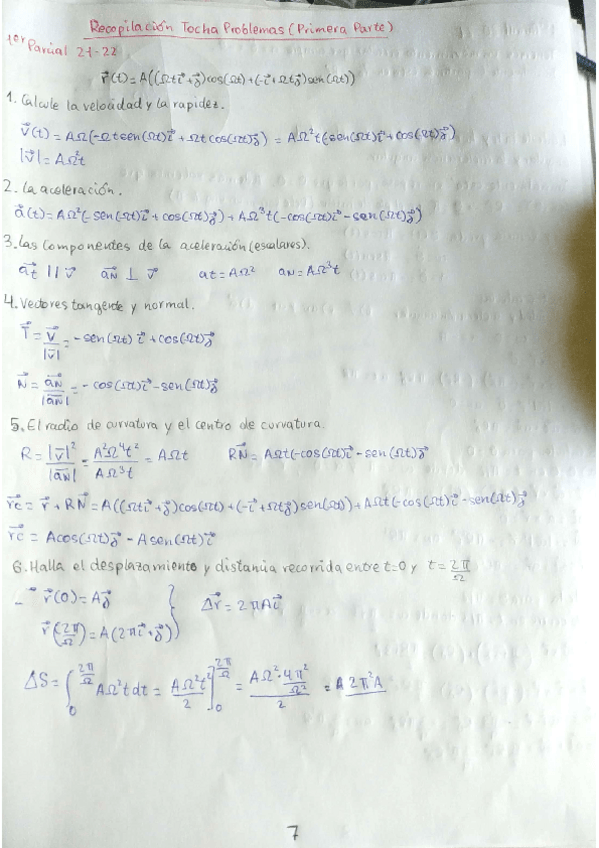 Recopilación Tocha Problemas (Primera Parte)
1er Parcial 21-22
r⃗(t) = A((Ωt i⃗ + j⃗)cos(Ωt) + (-i⃗ + Ωt j⃗)sen(Ωt))
1. Calcule la velocidad y la rapidez.
v⃗(t) = AΩ(-Ωt sen(Ωt) i⃗ + Ωt cos(Ωt) j⃗) = AΩ²t(-sen(Ωt) i⃗ + cos(Ωt) j⃗)
|v⃗| = AΩ²t
2. La aceleración.
a⃗(t) = AΩ²(-sen(Ωt) i⃗ + cos(Ωt) j⃗) + AΩ³t(-cos(Ωt) i⃗ - sen(Ωt) j⃗)
3. Las componentes de la aceleración (escalares).
a⃗t || v⃗ a⃗N ⊥ v⃗ at = AΩ² aN = AΩ³t
4. Vectores tangente y normal.
T⃗ = v⃗/|v⃗| = -sen(Ωt) i⃗ + cos(Ωt) j⃗
N⃗ = a⃗N/|a⃗N| = -cos(Ωt) i⃗ - sen(Ωt) j⃗
5. El radio de curvatura y el centro de curvatura.
R = |v⃗|²/|a⃗N| = A²Ω⁴t²/AΩ³t = AΩt RN⃗ = AΩt(-cos(Ωt) i⃗ - sen(Ωt) j⃗
r⃗c = r⃗ + RN⃗ = A((Ωt i⃗ + j⃗)cos(Ωt) + (-i⃗ + Ωt j⃗)sen(Ωt)) + AΩt(-cos(Ωt) i⃗ - sen(Ωt) j⃗
r⃗c = Acos(Ωt) j⃗ - Asen(Ωt) i⃗
6. Halla el desplazamiento y distancia recorrida entre t=0 y t = 2π/Ω
r⃗(0) = A j⃗
r⃗(2π/Ω) = A(2π i⃗ + j⃗) } Δr⃗ = 2πA i⃗
ΔS = ∫₀^(2π/Ω) AΩ²t dt = AΩ²t²/2 ]₀^(2π/Ω) = (AΩ²·4π²/Ω²)/2 = A 2π²A
7